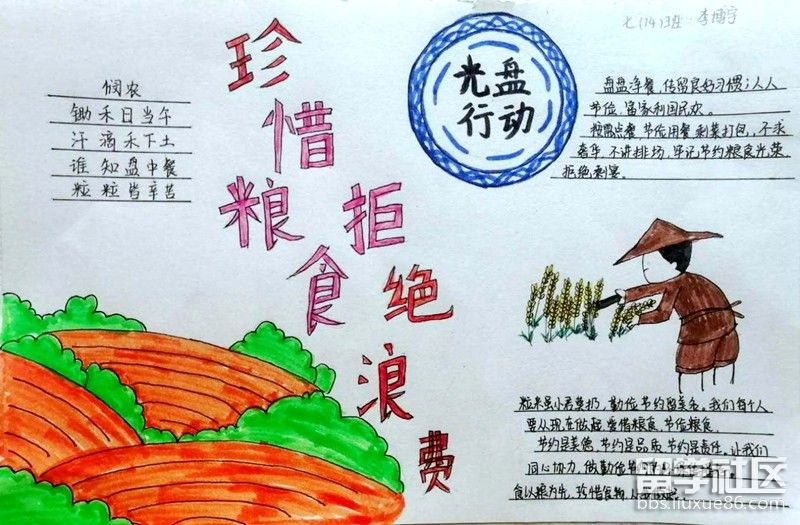 七(14)班 李博宇
珍惜粮食
拒绝浪费
光盘
行动
悯农
锄禾日当午
汗滴禾下土
谁知盘中餐
粒粒皆辛苦
盘盘净餐,传留良好习惯;人人
节俭,富家利国民欢。
按需点餐 节俭用餐 剩菜打包,不求
奢华,不讲排场,牢记节约粮食光荣
拒绝剩宴。
粒米虽小君莫扔,勤俭节约留美名,我们每个人
要从现在做起,爱惜粮食,节俭粮食。
节约是美德 节约是品质 节约是责任,让我们
同心协力,做勤俭节
食以粮为先,珍惜食物,
留学社区
bbs.liuxue86.com